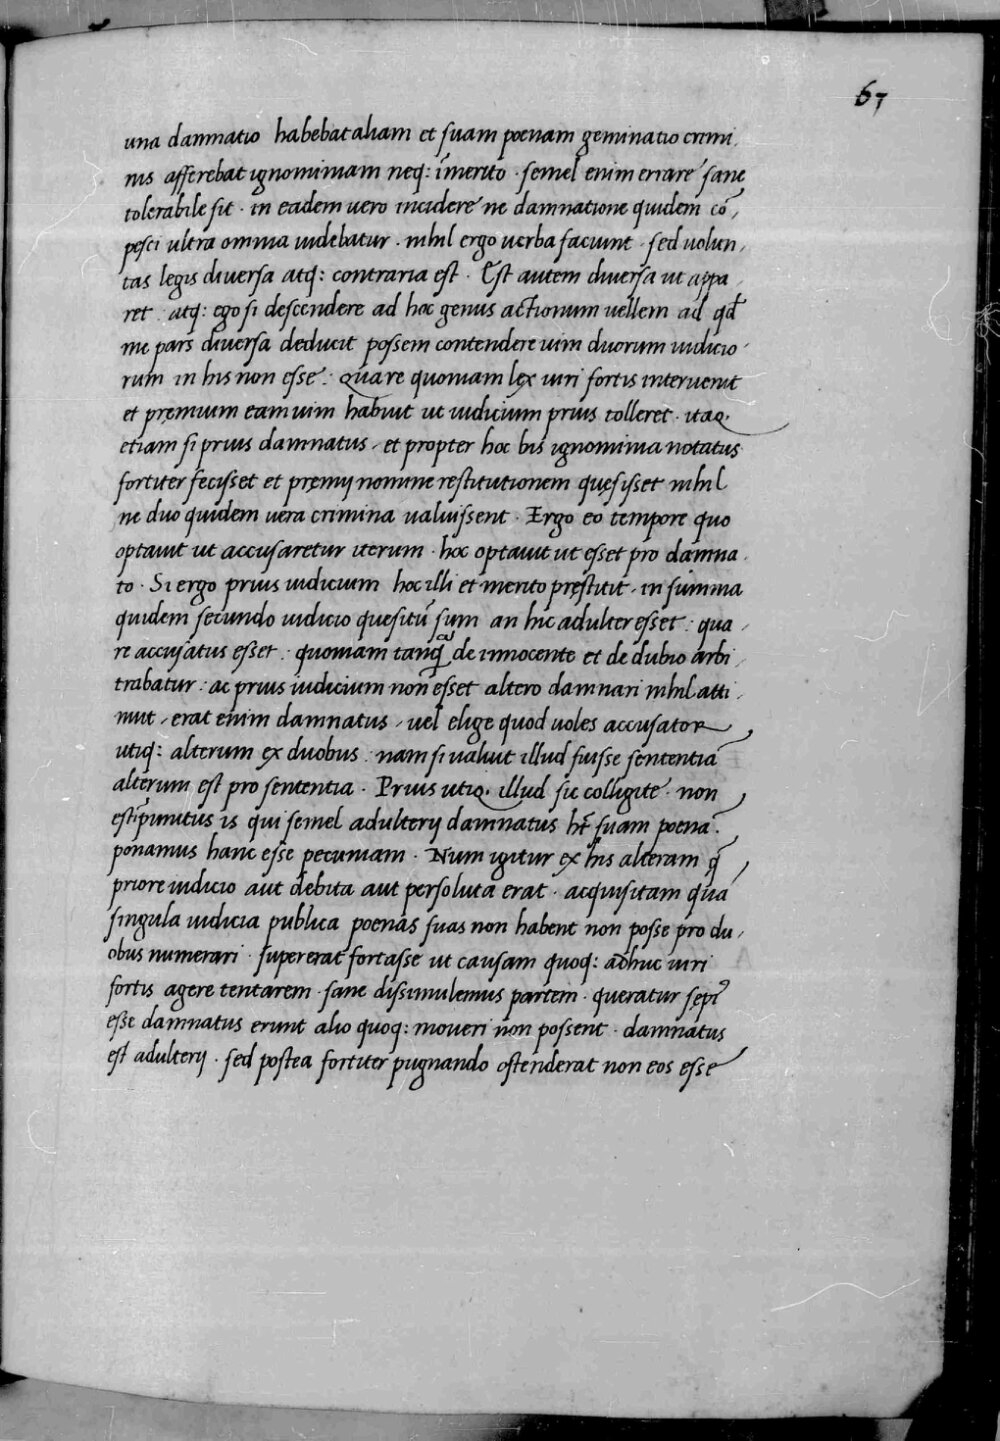 67
una damnatio habebat aliam et suam poenam geminatio crimi,
nis afferebat ignominiam neq: īmerito · semel enim errare sane
tolerabile sit · in eadem uero incidere ne damnatione quidem cō,
pesci ultra omnia uidebatur · nihil ergo uerba faciunt · sed uolun,
tas legis diuersa atq: contraria est · Est autem diuersa ut appa,
ret · atq: ego si descendere ad hoc genus actionum uellem ad qđ
me pars diuersa deducit possem contendere uim duorum iudicio,
rum in his non esse · Quare quoniam lex uiri fortis interuenit
et pręmium eam uim habuit ut iudicium prius tolleret · itaq.
etiam si prius damnatus, et propter hoc bis ignominia notatus
fortiter fecisset et pręmij nomine restitutionem quęsisset nihil
ne duo quidem uera crimina ualuissent · Ergo eo tempore quo
optauit ut accusaretur iterum · hoc optauit ut esset pro damna,
to · Si ergo prius iudicium hoc illi et merito pręstitit · in summa
quidem secundo iudicio quesitū sum an hic adulter esset : qua,
re accusatus esset : quoniam tanq̄ de innocente et de dubio arbi,
trabatur : ac prius iudicium non esset altero damnari nihil atti,
nuit, erat enim damnatus, uel elige quod uoles accusator,
utiq: alterum ex duobus : nam si ualuit illud fuisse sententiā
alterum est pro sententia · Prius utiq. illud sic colligite · non,
est punitus is qui semel adulterij damnatus hēt suam poenā ·
ponamus hanc esse pecuniam · Num igitur ex his alteram q̄,
priore iudicio aut debita aut persoluta erat · acquisitam quā
singula iudicia publica poenas suas non habent non posse pro du,
obus numerari · supererat fortasse ut causam quoq: adhuc uiri
fortis agere tentarem · sane dissimulemus partem · queratur
esse damnatus erunt alio quoq: moueri non possent · damnatus
est adulterij · sed postea fortiter pugnando ostenderat non eos esse